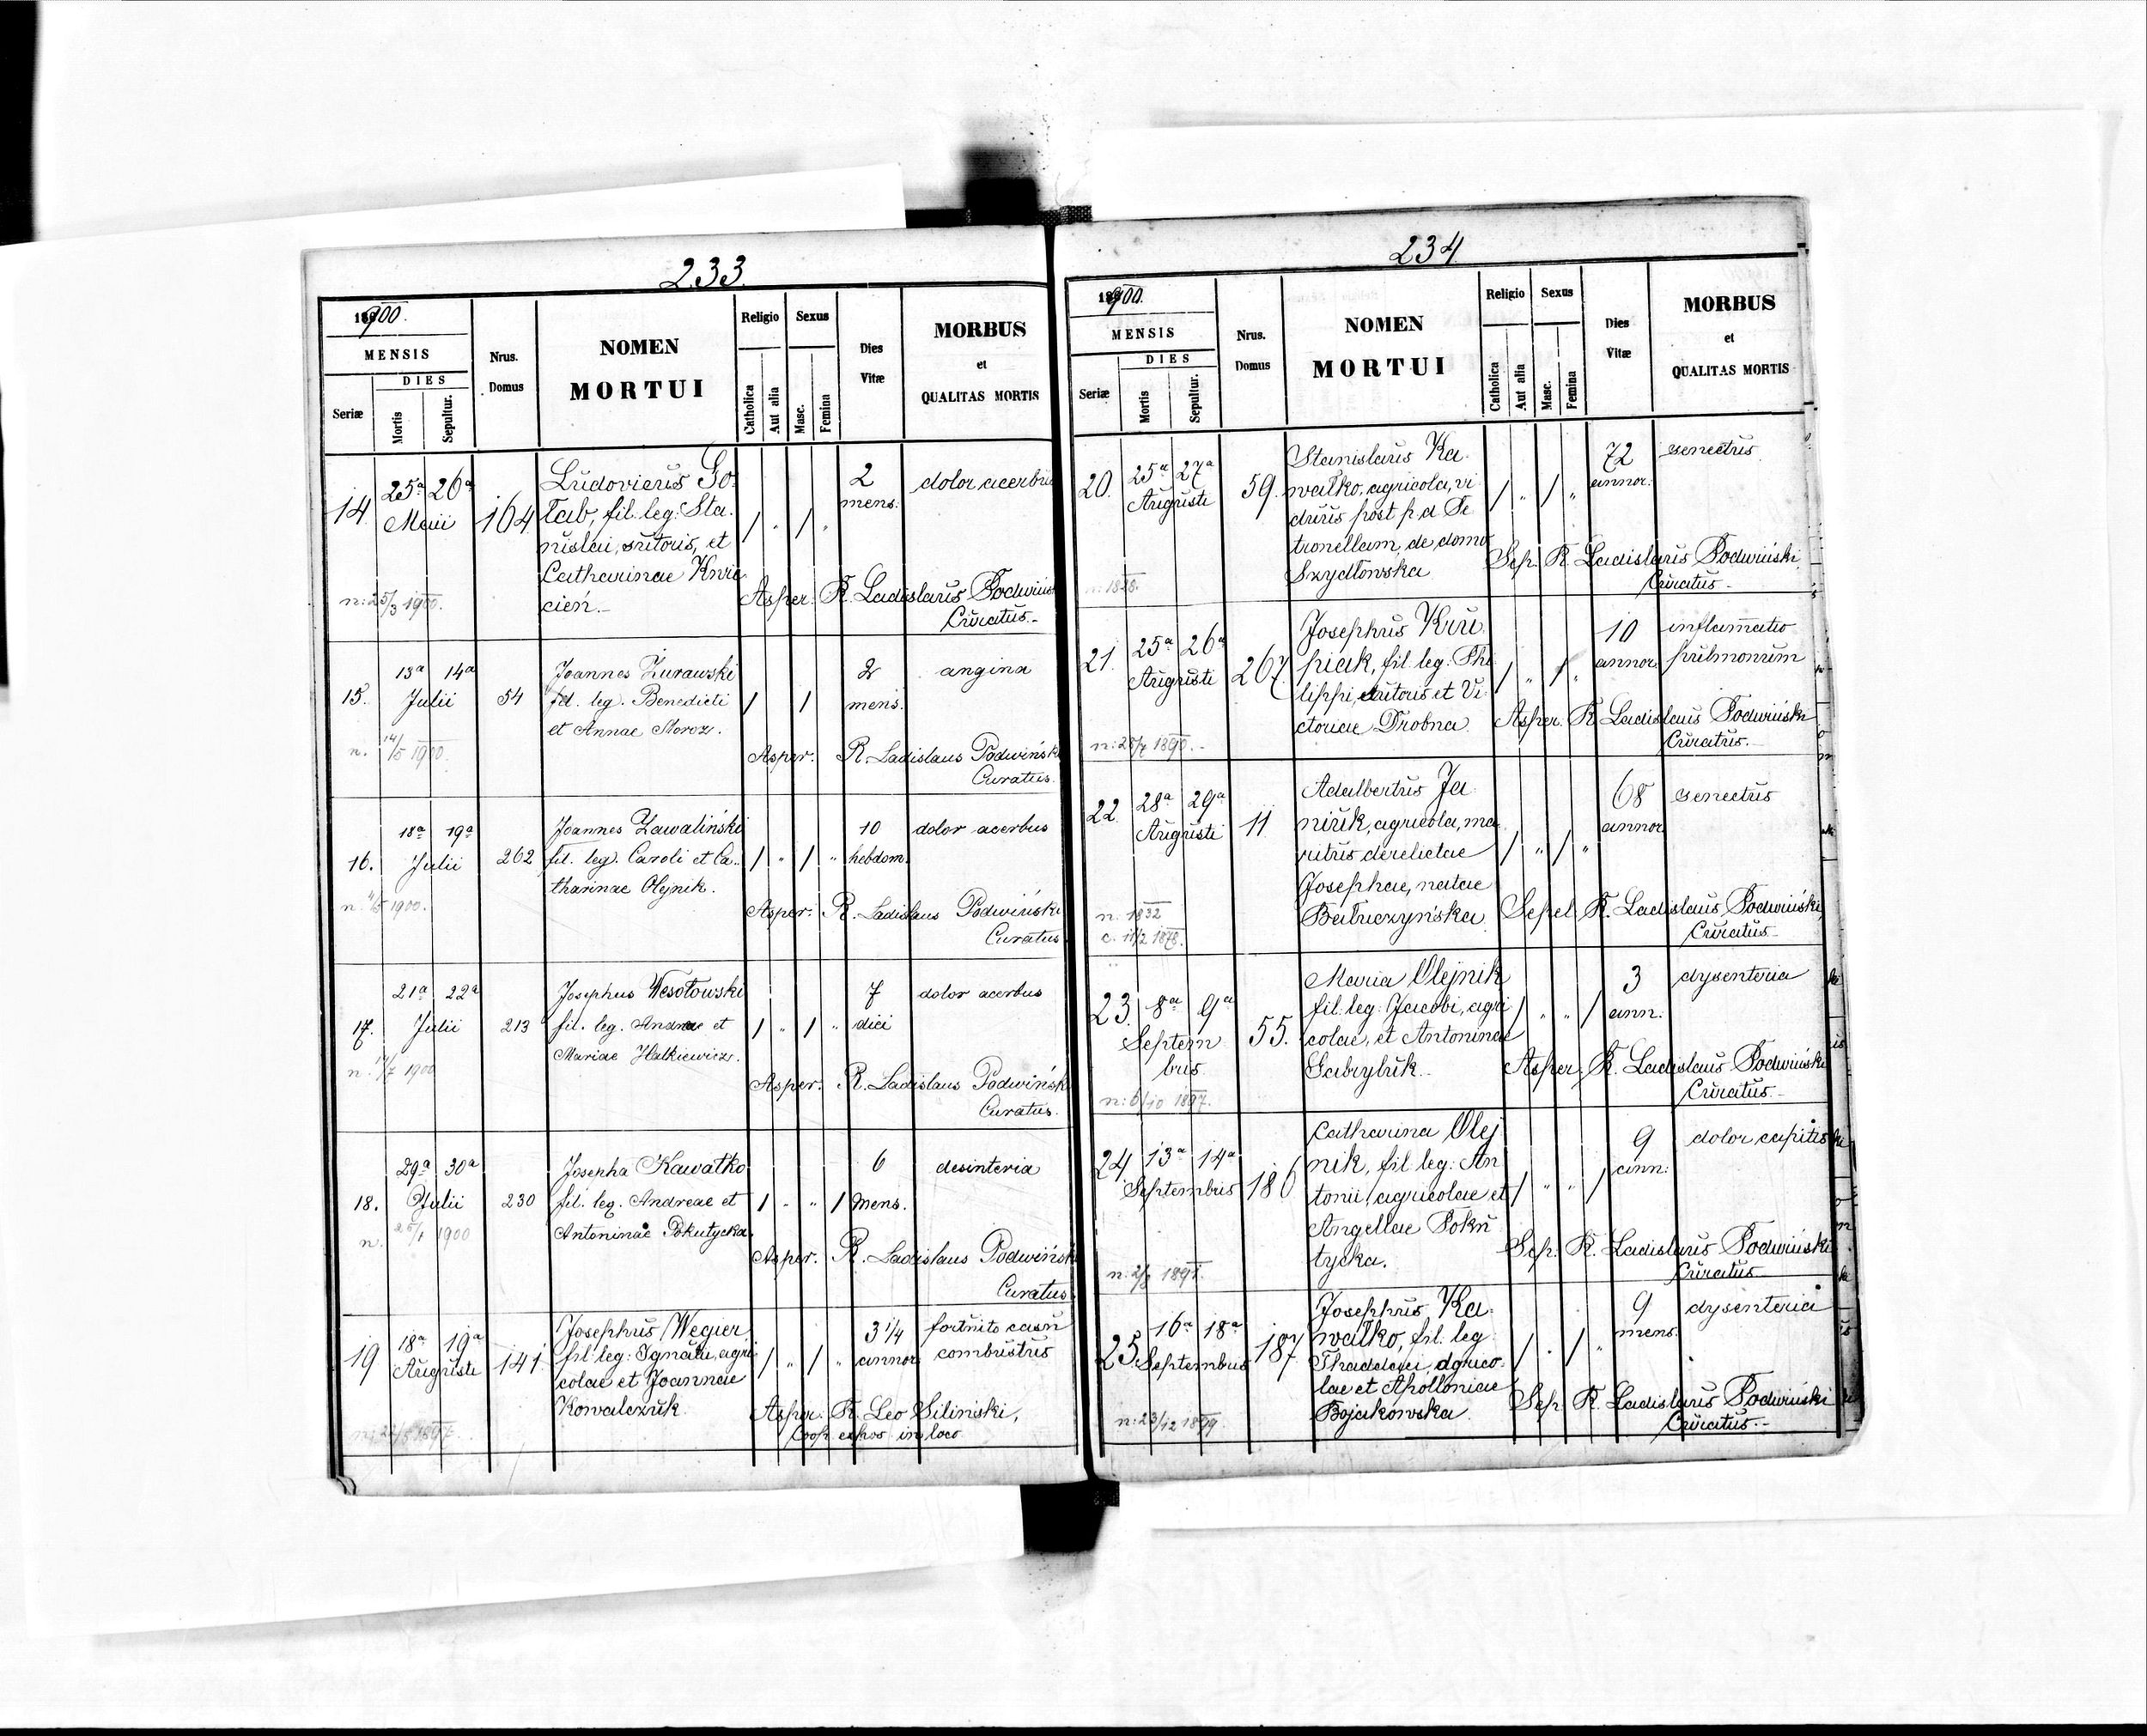 233.
1900.
MENSIS
DIES
Seriæ
Mortis
Sepultur.
Nrus.
Domus
NOMEN
MORTUI
Religio
Catholica
Aut alia
Sexus
Masc.
Femina
Dies
Vitæ
MORBUS
et
QUALITAS MORTIS
14. 25a 26a Maii 164
Ludovicus Go-
łab, fil. leg. Sta-
nislai, sutoris, et
Catharinae Kwie
cień.-
2 mens. dolor acerbus
n: 25/3 1900.
Asper. R. Ladislaus Podwiński
Curatus.-
15. 13a 14a Julii 54
Joannes Żurawski
fil. leg. Benedicti
et Annae Storoz.
2 mens. angina
n. 14/5 1900.
Asper. R. Ladislaus Podwiński
Curatus.
16. 18a 19a Julii 262
Joannes Zawaliński
fil. leg. Caroli et Ca-
tharinae Olejnik.
10 hebdom. dolor acerbus
n. 4/5 1900.
Asper. R. Ladislaus Podwiński
Curatus
17. 21a 22a Julii 213
Josephus Wesołowski
fil. leg. Andreae et
Mariae Hałkiewicz.
7 diei dolor acerbus
n. 14/7 1900
Asper. R. Ladislaus Podwiński
Curatus.
18. 29a 30a Julii 230
Josepha Kawałko
fil. leg. Andreae et
Antoninae Pokutycka.
6 mens. desinteria
n. 25/1 1900
Asper. R. Ladislaus Podwiński
Curatus
19 18a 19a Augusti 141.
Josephus Węgier,
fil. leg: Ignatii, agri
colae et Joannae
Kowalczuk
3 1/4 annor. fortuito casu
combustus
Asper. R. Leo Siliński,
Coop. expos in loco
234
1900.
MENSIS
DIES
Seriæ
Mortis
Sepultur.
Nrus.
Domus
NOMEN
MORTUI
Religio
Catholica
Aut alia
Sexus
Masc.
Femina
Dies
Vitæ
MORBUS
et
QUALITAS MORTIS
20. 25a 27a Augusti 59.
Stanislaus Ka-
wałko, agricola, vi
duus post p. d. Pe
tronellam, de domo
Szydłowska
72 annor. senectus
n: 1828.
Sep. R. Ladislaus Podwiński,
Curatus.-
21. 25a 26a Augusti 267.
Josephus Kru
piak, fil. leg: Phi
lippi, sutoris et Vi-
ctoriae Drobna
10 annor. inflamatio
pulmonum
n: 1890.-
Asper. R. Ladislaus Podwiński
Curatus.-
22. 28a 29a Augusti 11
Adalbertus Ja-
niuk, agricola, ma
ritus derelictae
Josephae, natae
Bałuczyńska
68 annor. senectus
n. 1832
c. 11/2 1878.
Sepel. R. Ladislaus Podwiński,
Curatus.-
23. 8a 9a Septem
bris 55.
Maria Olejnik
fil. leg: Jacobi, agri
colae, et Antoninae
Gabrybuk.-
3 ann. dysenteria
n: 6/10 1897.
Asper. R. Ladislaus Podwiński
Curatus.-
24. 13a 14a Septembris 186
Catharina Olej
nik, fil. leg: An
tonii, agricolae et
Angellae Poku
tycka.
9 ann: dolor capitis
n: 1891.
Sep. R. Ladislaus Podwiński
Curatus
25. 16a 18a Septembris 187
Josephus Ka-
wałko, fil. leg
Thaddaei, agrico-
lae et Apolloniae
Bojakowska
9 mens. dysenteria
n: 23/12 1899.
Sep. R. Ladislaus Podwiński
Curatus.-